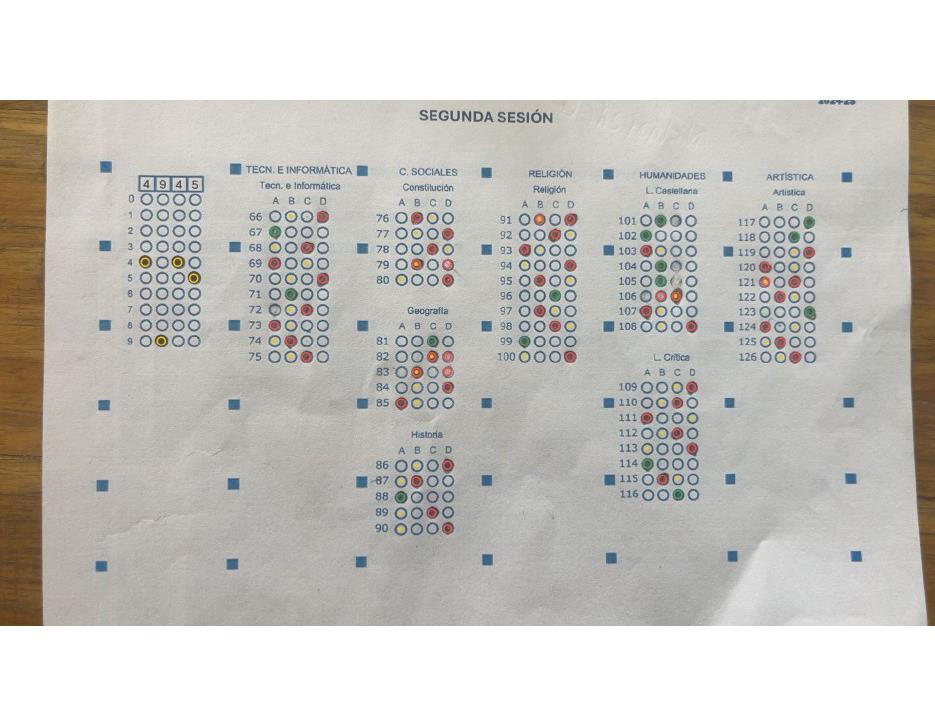 2024-25
SEGUNDA SESIÓN
TECN. E INFORMÁTICA
Tecn. e Informática
A B C D
66
67
68
69
70
71
72
73
74
75
4 9 4 5
0
1
2
3
4
5
6
7
8
9
C. SOCIALES
Constitución
A B C D
76
77
78
79
80
Geografía
A B C D
81
82
83
84
85
Historia
A B C D
86
87
88
89
90
RELIGIÓN
Religión
A B C D
91
92
93
94
95
96
97
98
99
100
HUMANIDADES
L. Castellana
A B C D
101
102
103
104
105
106
107
108
L. Crítica
A B C D
109
110
111
112
113
114
115
116
ARTÍSTICA
Artística
A B C D
117
118
119
120
121
122
123
124
125
126